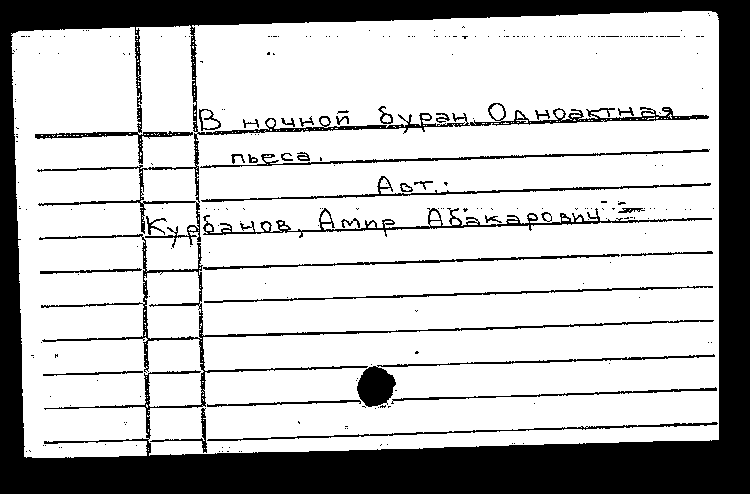 В ночной буран. Одноактная
пьеса.
Авт.:
Курбанов, Амир Абакарович